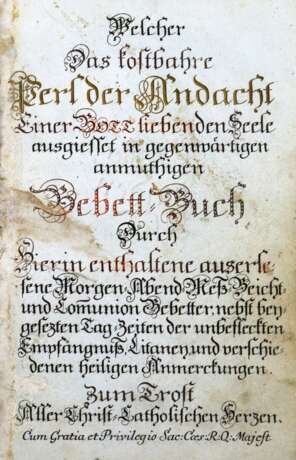 Welcher
Das kostbahre
Perl der Andacht
Einer GOTT liebenden Seele
ausgiesset in gegenwärtigen
anmuthigen
Gebett-Buch
Durch
Hierin enthaltene auserle
sene Morgen Abend Meß Beicht
und Com̄union Gebetter, nebst bey
gesezten Tag-Zeiten der unbefleckten
Empfängnuß, Litaneÿ, und verschie-
denen heiligen Anmerckungen.
Zum Trost
Aller Christ-Catholischen Herzen.
Cum Gratia et Privilegio Sac: Cæs. R.Q. Majest